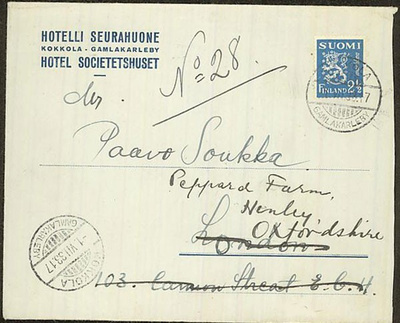 HOTELLI SEURAHUONE
KOKKOLA - GAMLAKARLEBY
HOTEL SOCIETETSHUSET
No 28.
SUOMI
FINLAND 2½
GAMLAKARLEBY
Mr.
Paavo Soukka
Peppard Farm,
Henley,
Oxfordshire
London
103. Cannon Street E.C.4.
KOKKOLA
1.VI.33.17
GAMLAKARLEBY